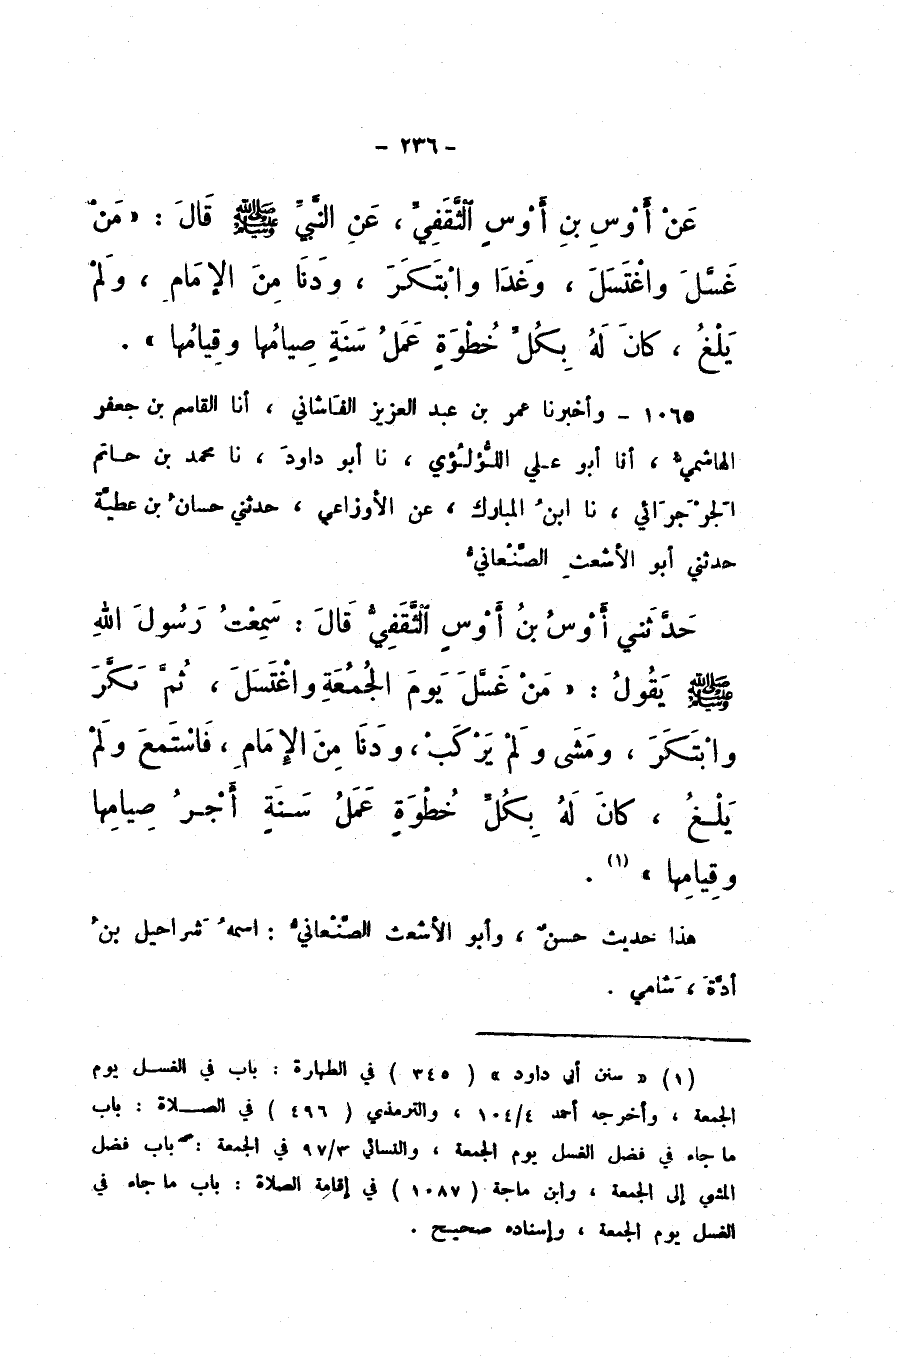 - ٢٣٦ -
عَنْ أَوْسِ بنِ أَوْسٍ الثَّقَفِيِّ ، عَنِ النَّبِيِّ ﷺ قَالَ : « مَنْ
غَسَّلَ واغْتَسَلَ ، وغَدَا وابْتَكَرَ ، ودَنَا مِنَ الإمَامِ ، ولَمْ
يَلْغُ ، كانَ لَهُ بِكُلِّ خُطْوَةٍ عَمَلُ سَنَةٍ صِيامُها وقِيامُها » .
١٠٦٥ - وأخبرنا عمر بن عبد العزيز الفاشاني ، أنا القاسم بن جعفر
الهاشميُّ ، أنا أبو علي اللُّؤلُؤي ، نا أبو داودَ ، نا محمد بن حاتم
الجَرْجَرَائي ، نا ابنُ المبارك ، عن الأوزاعي ، حدثني حسانُ بن عطيَّة
حدثني أبو الأشعثِ الصَّنْعانيُّ
حَدَّثَني أَوْسُ بنُ أَوْسٍ الثَّقَفِيُّ قَالَ : سَمِعْتُ رَسُولَ اللهِ
ﷺ يَقُولُ : « مَنْ غَسَّلَ يَومَ الجُمُعَةِ واغْتَسَلَ ، ثُمَّ بَكَّرَ
وابْتَكَرَ ، ومَشَى ولَمْ يَرْكَبْ ، ودَنَا مِنَ الإمَامِ ، فَاسْتَمعَ ولَمْ
يَلْغُ ، كانَ لَهُ بِكُلِّ خُطْوَةٍ عَمَلُ سَنَةٍ أَجْرُ صِيامِها
وقِيامِها » (١) .
هذا حديث حسنٌ ، وأبو الأشعث الصَّنْعانيُّ : اسمهُ شَراحيل بنُ
أدَّةَ ، شَامي .
(١) « سنن أبي داود » ( ٣٤٥ ) في الطهارة : باب في الغسل يوم
الجمعة ، وأخرجه أحمد ١٠٤/٤ ، والترمذي ( ٤٩٦ ) في الصلاة : باب
ما جاء في فضل الغسل يوم الجمعة ، والنسائي ٩٧/٣ في الجمعة : باب فضل
المشي إلى الجمعة ، وابن ماجة ( ١٠٨٧ ) في إقامة الصلاة : باب ما جاء في
الغسل يوم الجمعة ، وإسناده صحيح .